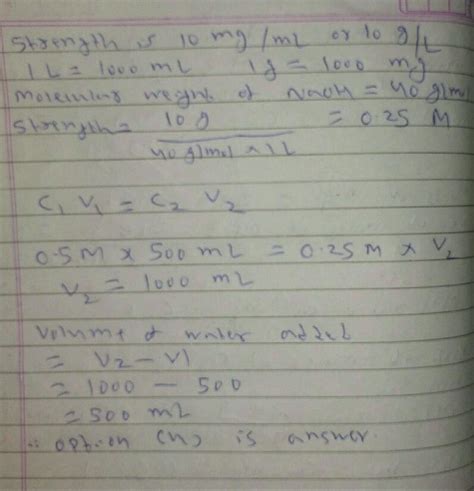 Strength is 10 mg/mL or 10 g/L
1 L = 1000 mL 1g = 1000 mg
molecular weight of NaOH = 40 g/mol
Strength = 10 g / 40 g/mol × 1L = 0.25 M
C1 V1 = C2 V2
0.5 M × 500 mL = 0.25 M × V2
V2 = 1000 mL
Volume of water added
= V2 - V1
= 1000 - 500
= 500 mL
∴ option is answer.